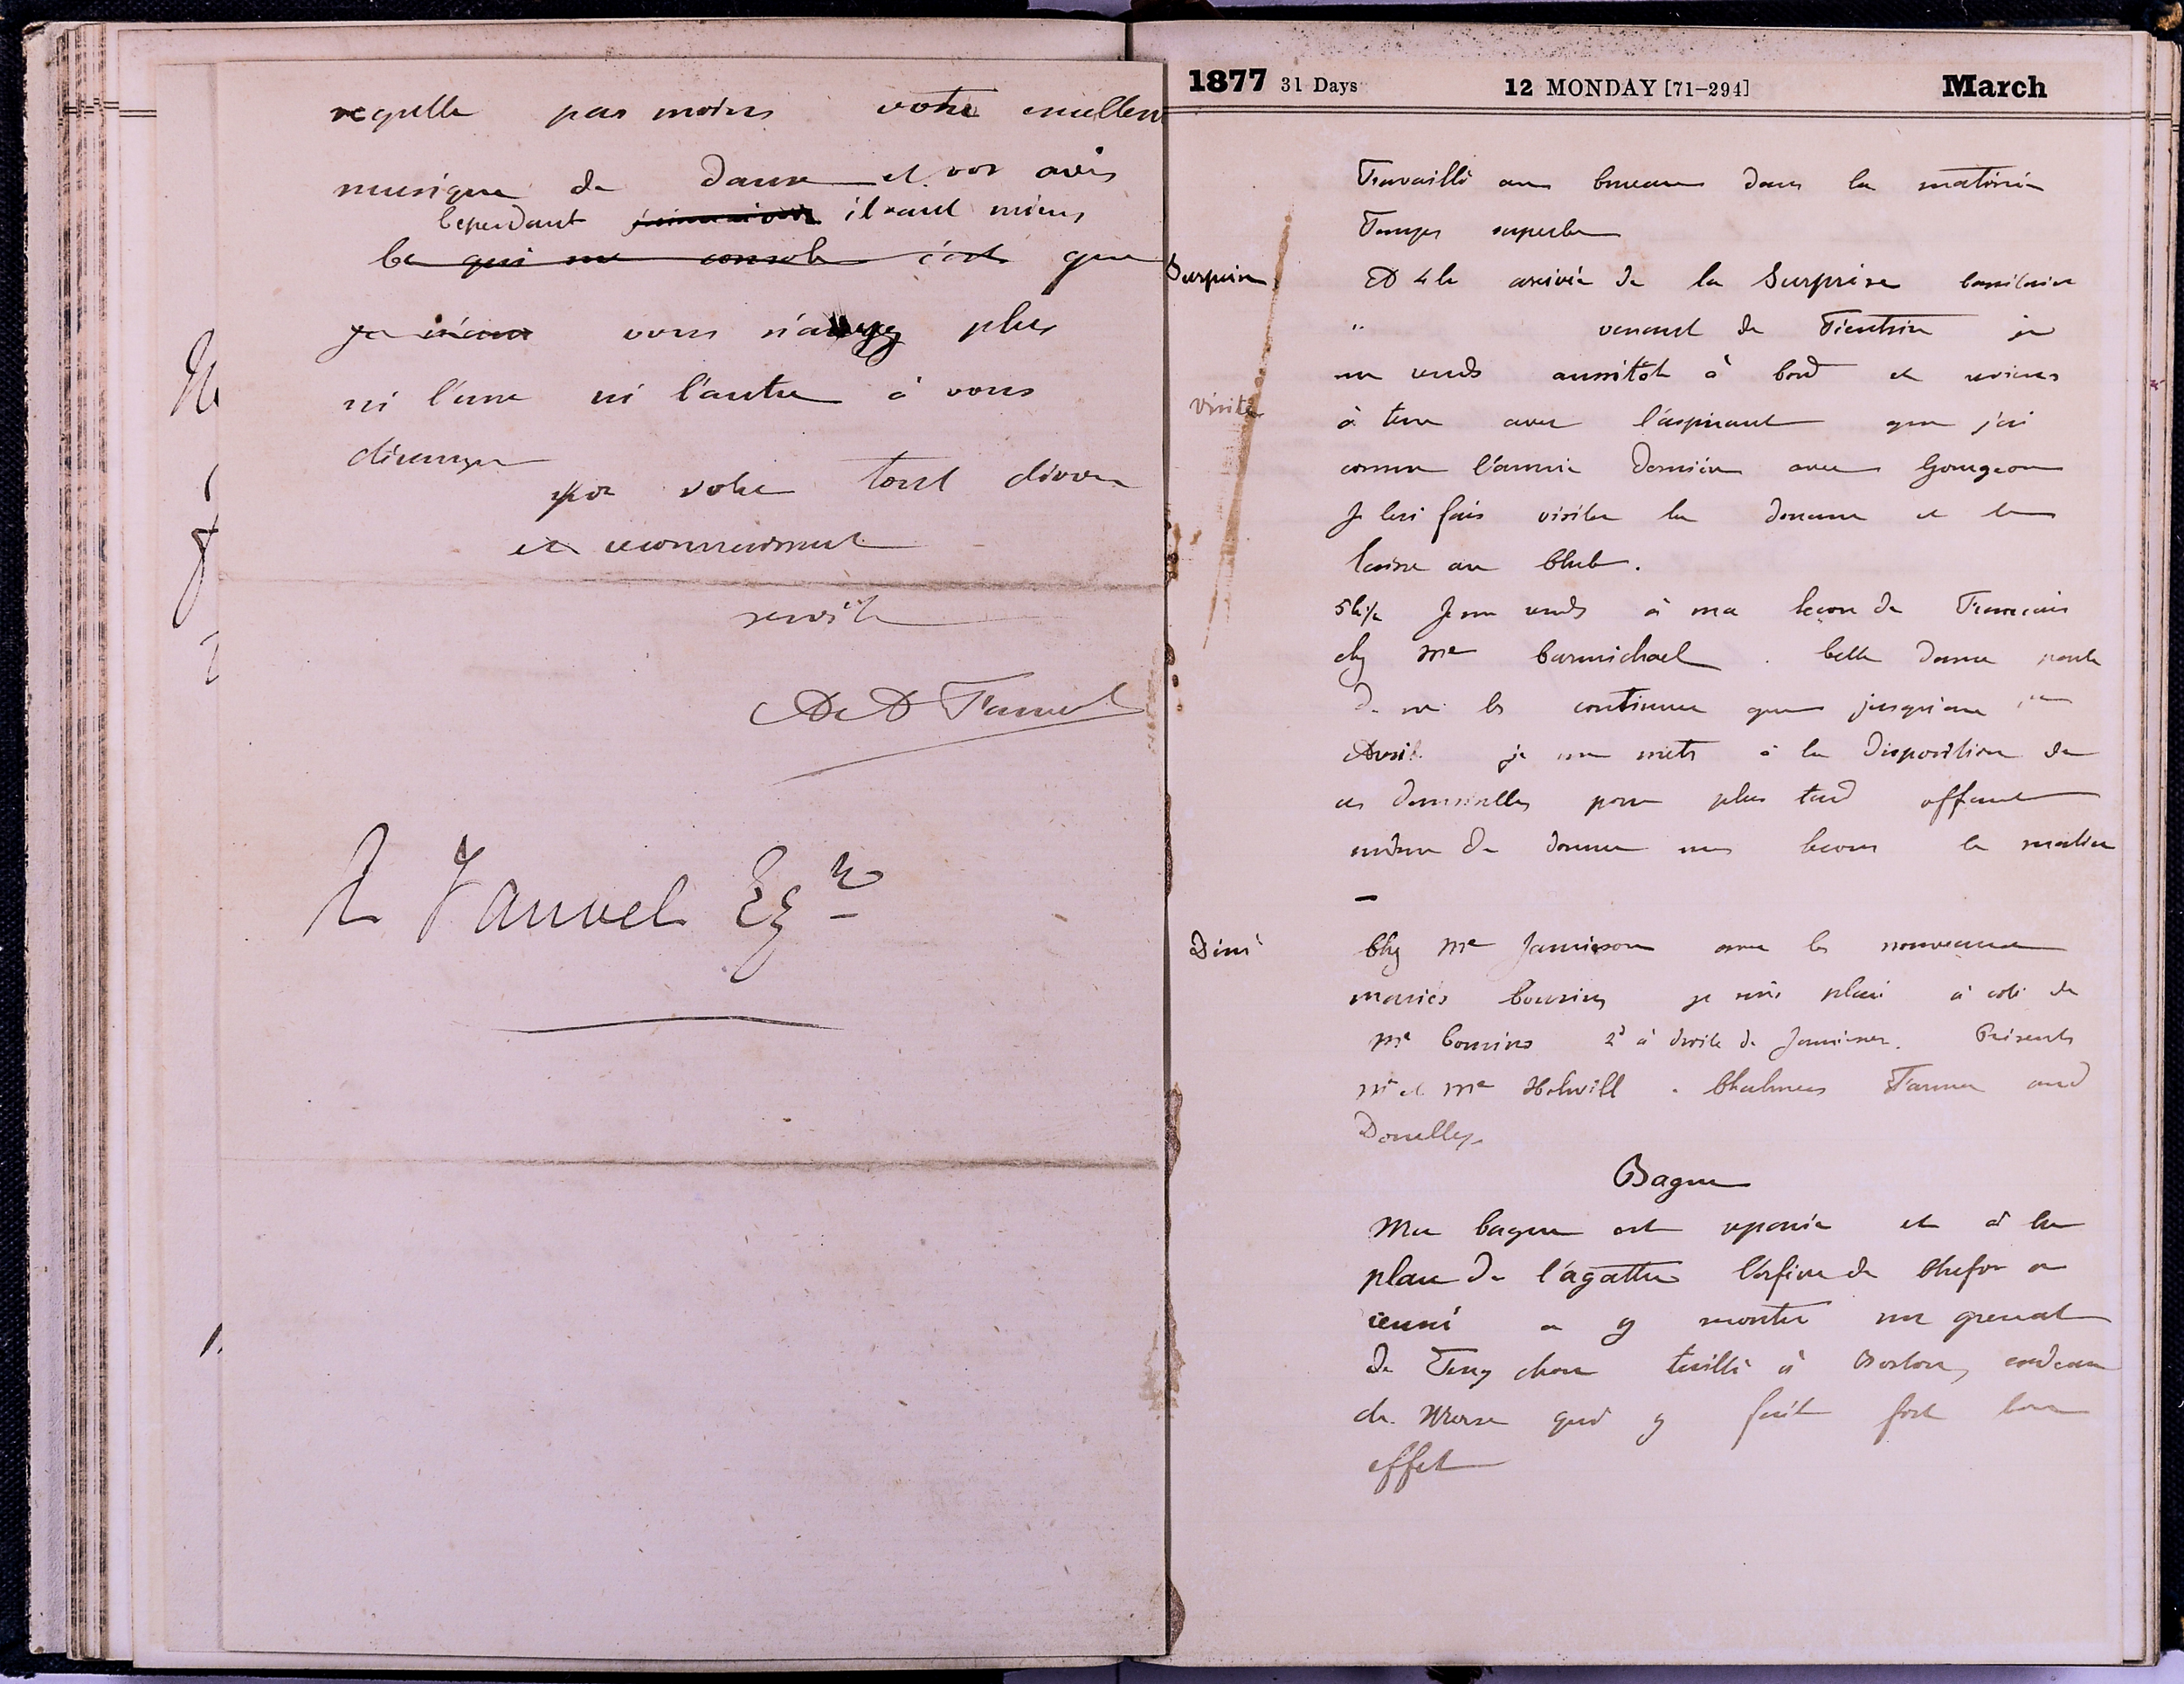 regrette pas moins votre excellen
musique de danse et vos avis
Cependant il vaut mieux
Ce qui me console c'est que
je n'aur vous n'ayez plus
ni l'une ni l'autre à vous
déranger
votre tout dévoué
et reconnaissant
servite
A D Fauvel
A Fauvel Esqr
1877 31 Days 12 MONDAY [71-294] March
Travaillé au bureau dans la matinée
Temps superbe
Surprise A 4h arrivée de la Surprise
" venant de Tientsin je
me rends aussitôt à bord et reviens
Visite à terre avec l'aspirant que j'ai
connu l'année dernière avec Gourgeon
Je lui fais visiter la douane et le
laisse au Club.
5h½ Je me rends à ma leçon de Francais
chez Me Carmichael. Cette dame parle
de ne les continuer que jusqu'au 1er
Avril je me mets à la disposition de
ces demoiselles pour plus tard offrant
même de donner mes lecons le matin
—
Diné Chez Me Jamieson avec les nouveaux
mariés Cousins je suis placé à coté de
Me Cousins 2d à droite de Jamieson. Présents
Mr et Me Holwill. Chalmers Farmer and
Donelley.
Bague
Ma bague est réparée et à la
place de l'agathe l'orfèvre de Chefoo a
réussi a y monter un grenat
de Teng chow taillé à Boston, cadeau
de Morse qui y fait fort bon
effet